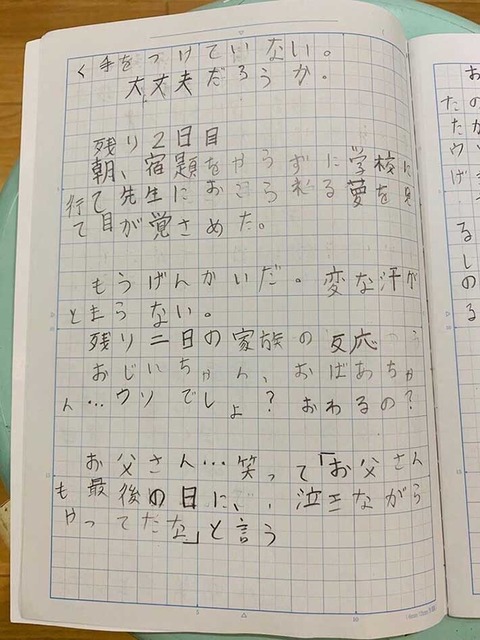 く手をつけていない。
大丈夫だろうか。
残り2日目
朝、宿題をやらずに学校に
行て、先生におこられる夢を見
て目が覚さめた。
もうげんかいだ。変な汗が
とまらない。
残り二日の家族の反応
おじいちゃん、おばあちゃ
ん…ウソでしょ？おわるの？
お父さん…笑って「お父さん
も最後の日に、、泣きながら
やってたな」と言う
お
たの
たか
ウ
げ
るしのる